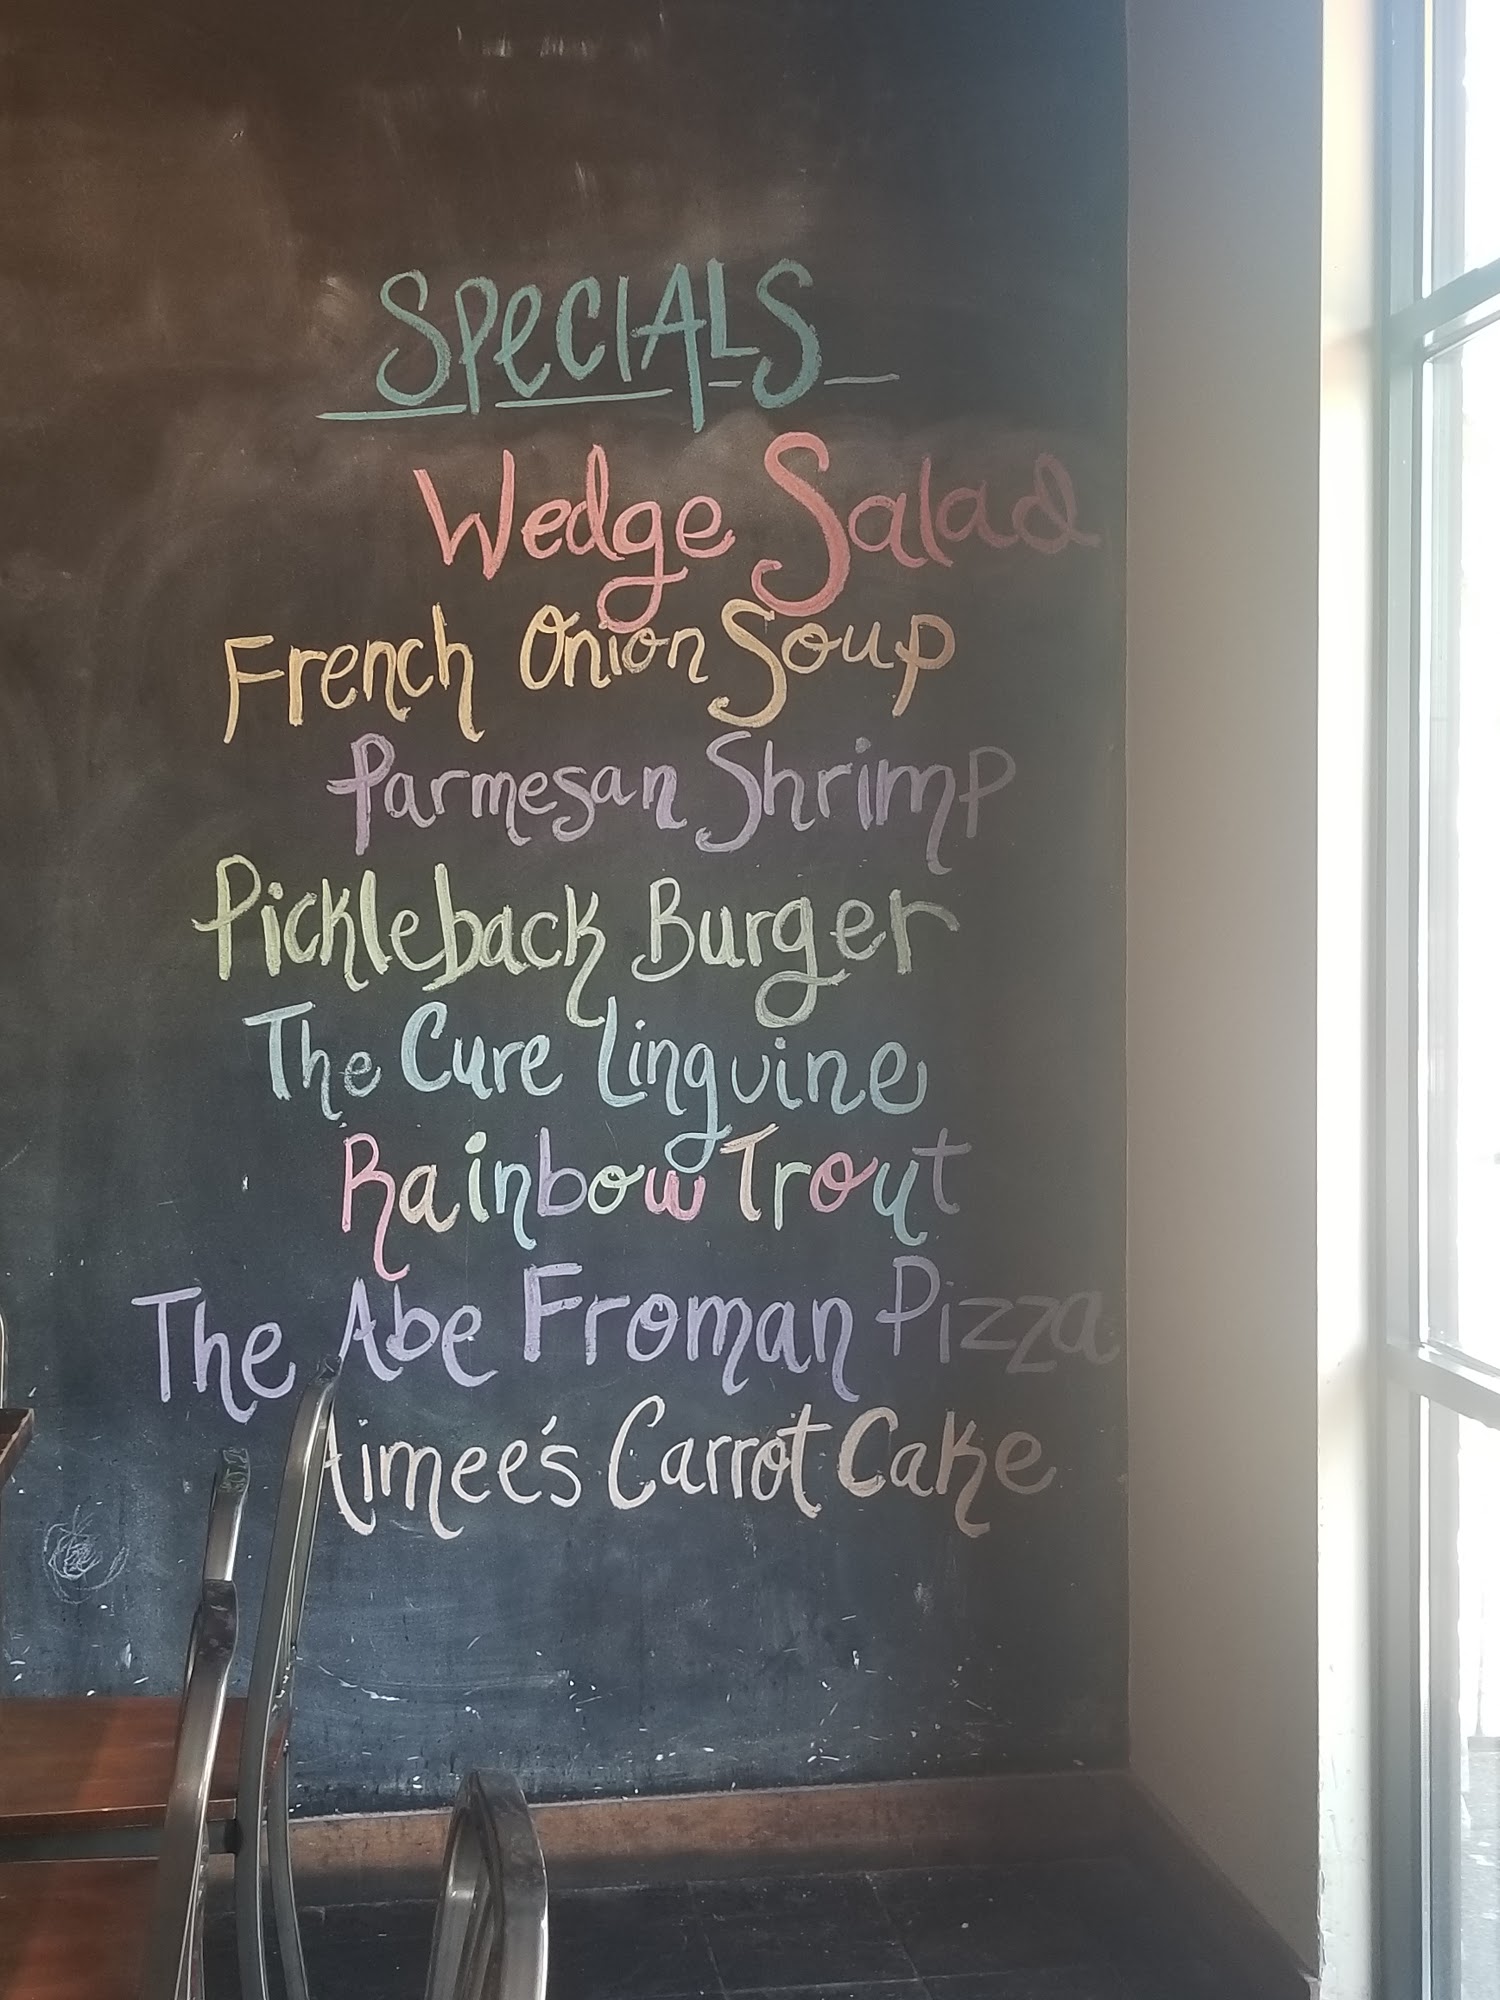 SPeCIALS
Wedge Salad
French Onion Soup
Parmesan Shrimp
Pickleback Burger
The Cure Linguine
Rainbow Trout
The Abe Froman Pizza
Aimee's Carrot Cake